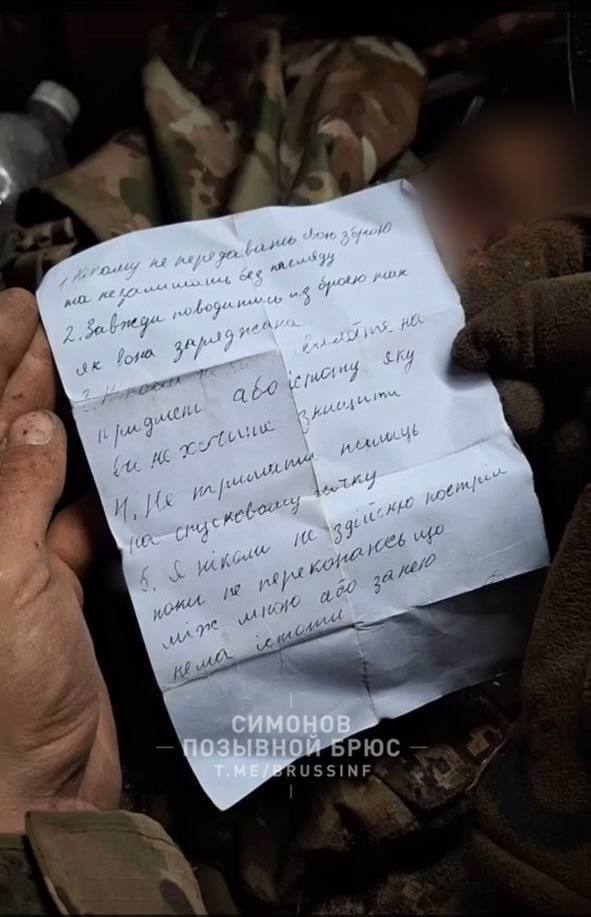 1. Нікому не передавать свою зброю
та незалишать без нагляду
2. Завжди поводитись із зброєю так
як вона заряджана.
3. Ніколи
придмет або істоту яку
ви не хочите знищити
4. Не тримати палець
на спусковому гачку
5. Я ніколи не здійсню постріл
поки не переконаюсь що
між мною або занею
нема істоти
СИМОНОВ
ПОЗЫВНОЙ БРЮС
T.ME/BRUSSINF